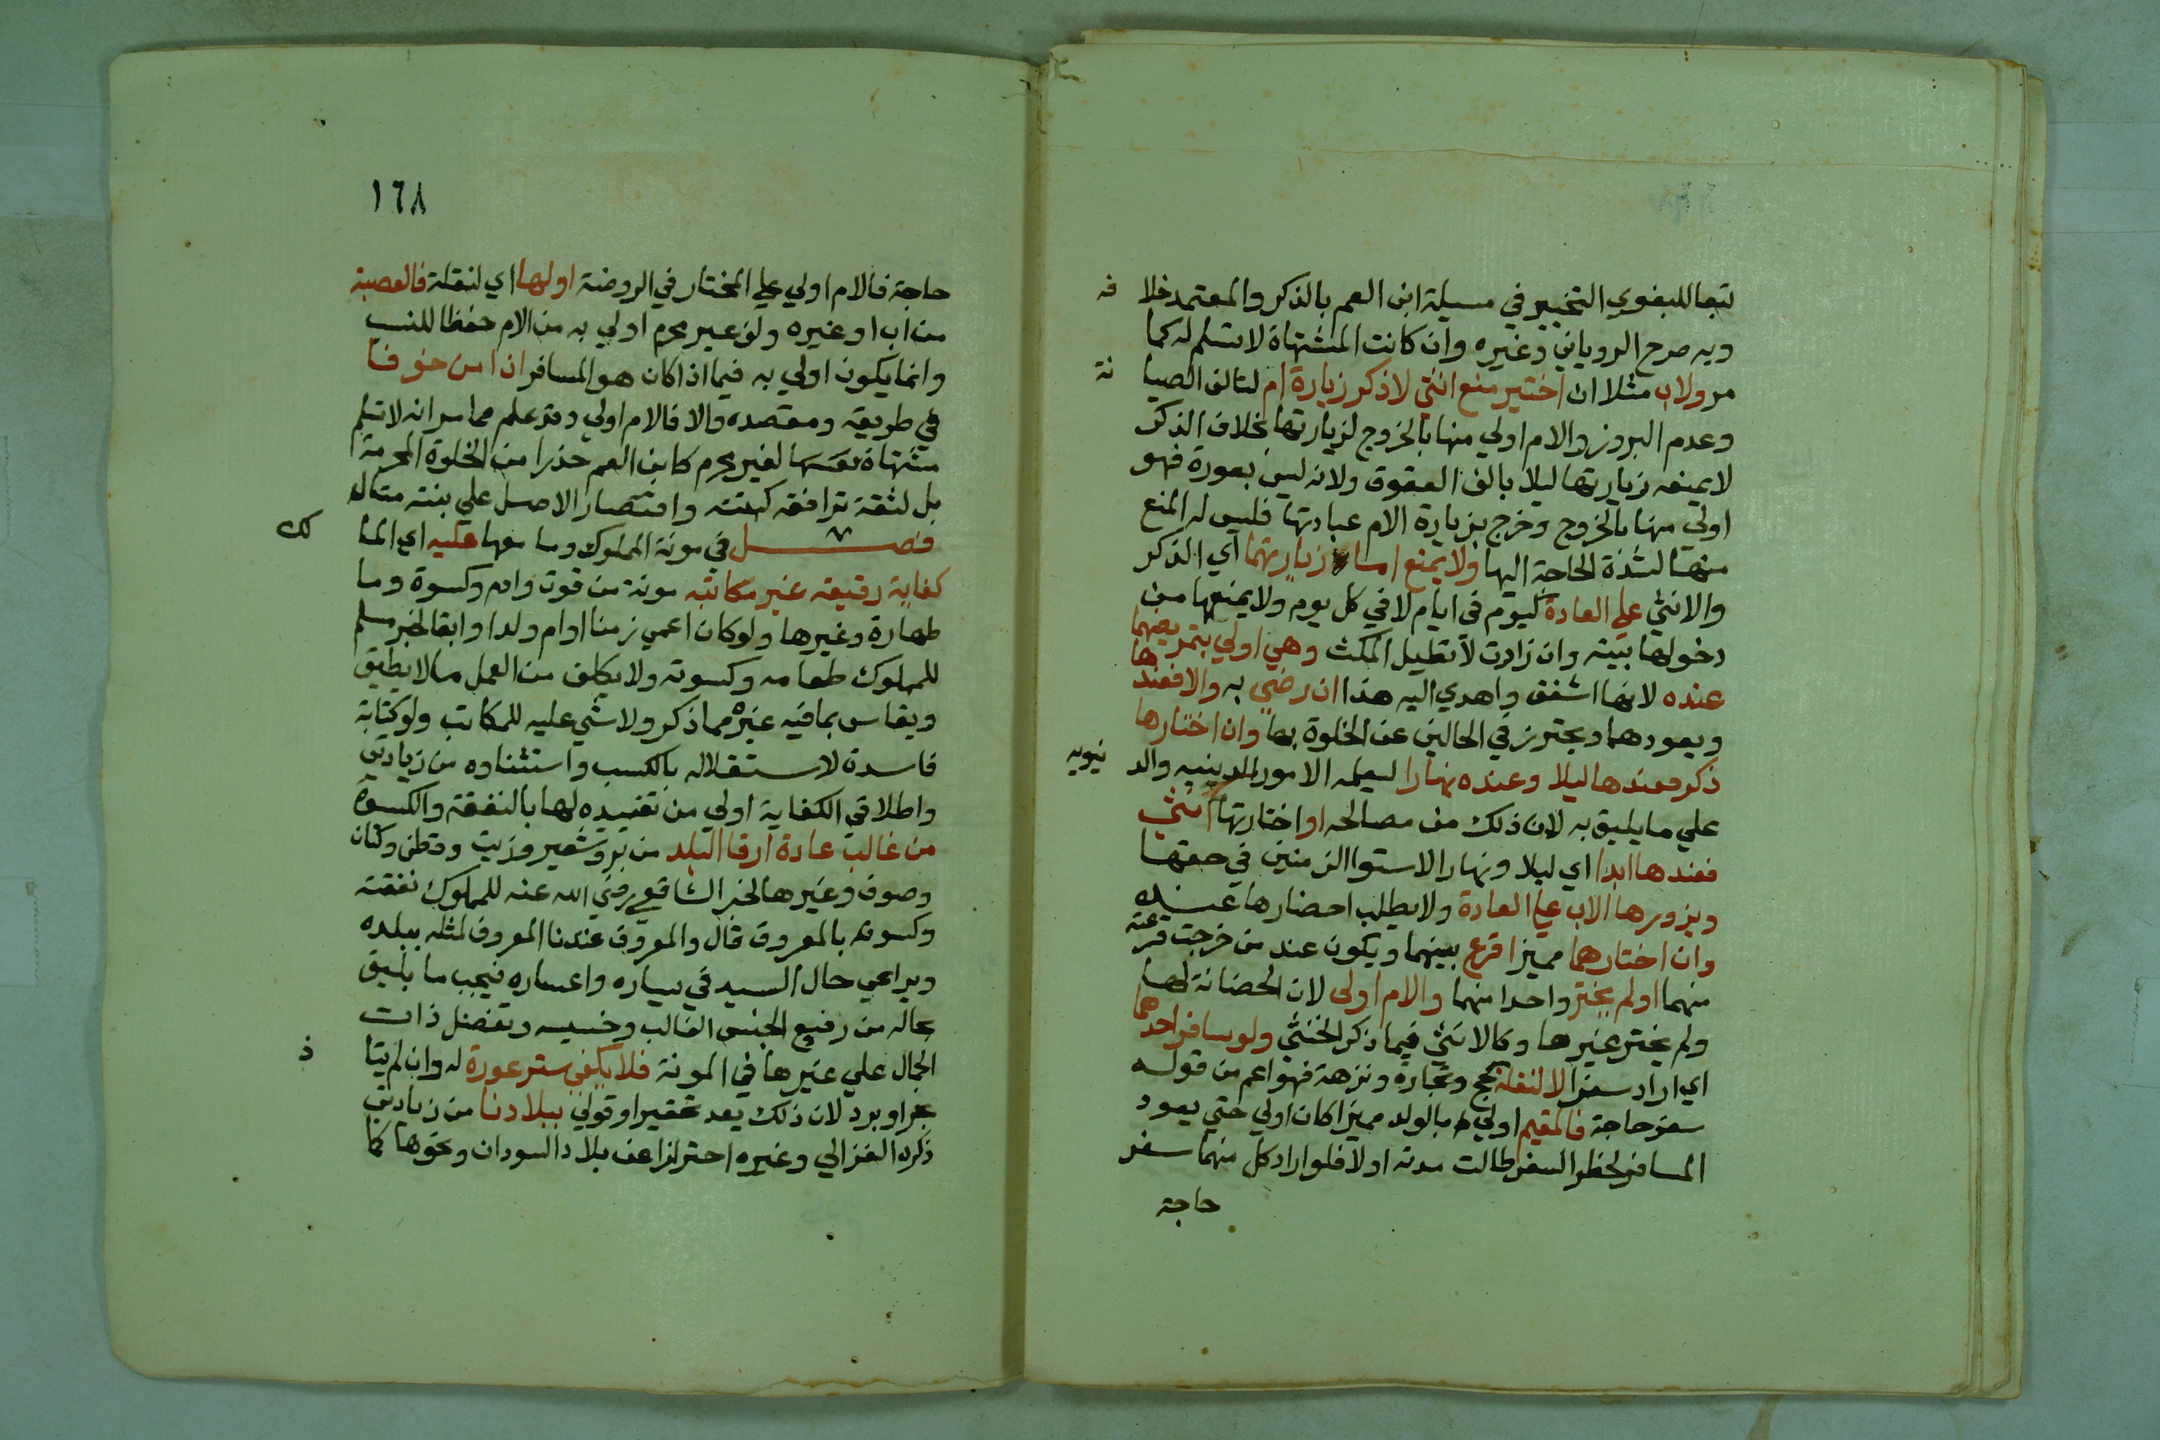 تبعا للبغوي التخيير في مسيلة ابن العم بالذكر والمعتمد خلا فه
وبه صرح الروياني وغيره وان كانت المشتهاة لا تسلم له كما
مر ولاب مثلا ان اختير منع انثي لا ذكر زيارة ام لتالف الصيا نة
وعدم البروز والام اولي منها بالخروج لزيارتها بخلاف الذكر
لا يمنعه زيارتها ليلا يالف العقوق ولانه ليس بعورة فهو
اولي منها بالخروج وخرج بزيارة الام عيادتها فليس له المنع
منها لشدة الحاجة اليها ولا يمنع اما زيارتهما اي الذكر
والانثي علي العادة كيوم في ايام لا في كل يوم ولا يمنعها من
دخولها بيته وان زارت لا تطيل المكث وهي اولي بتمريضهما
عنده لانها اشفق واهدي اليه هذا ان رضي به والا فعندها
ويعودهما ويحترز في الحالين عن الخلوة بها وان اختارها
ذكر فعندها ليلا وعنده نهارا ليعلمه الامور الدينيه والد نيويه
علي ما يليق به لان ذلك من مصالحه او اختارتها انثي
فعندها ابدا اي ليلا ونهارا لاستوا الزمنين في حقها
ويزورها الاب علي العادة ولا يطلب احضارها عنده
وان اختارهما مميز اقرع بينهما ويكون عند من خرجت قرعته
منهما او لم يختر واحدا منهما والام اولي لان الحضانة لها
ولم يختر غيرها وكالانثي فيما ذكر الخنثي ولو سافر احدهما
اي اراد سفرا لا لنقلة كحج وتجارة ونزهة فهو اعم من قوله
سفر حاجة فالمقيم اولي بالولد مميزا كان اولي حتي يعود
المسافر لخطر السفر طالت مدته اولا فلو اراد كل منهما سفر
حاجة
١٦٨
حاجة فالام اولي علي المختار في الروضة او لها اي لنقلة فالعصبة
من اب او غيره ولو غير محرم اولي به من الام حفظا للنسب
وانما يكون اولي به فيما اذا كان هو المسافر ان امن خوفا
في طريقه ومقصده والا فالام اولي وقد علم مما مر انه لا تسلم
مشتهاة نفسها لغير محرم كابن العم حذرا من الخلوة المحرمة
بل لثقة ترافقه كبنته واقتصار الاصل علي بنته مثال
فصل في مونة المملوك وما معها عليه اي الما لك
كفاية رقيقه غير مكاتبه مونة من قوت وادم وكسوة وما
طهارة وغيرها ولو كان اعمي زمنا او ام ولد او ابقا لخبر مسلم
للمملوك طعامه وكسوته ولا يكلف من العمل ما لا يطيق
ويقاس بما فيه غيره مما ذكر ولا شي عليه للمكاتب ولو كتابة
فاسدة لاستقلاله بالكسب واستثناوه من زيادتي
واطلاقي الكفاية اولي من تقييده لها بالنفقة والكسوة
من غالب عادة ارقا البلد من بر وشعير وزيت وقطن وكتان
وصوف وغيرها لخبر الشافعي رضي الله عنه للمملوك نفقته
وكسوته بالمعروف قال والمعروف عندنا المعروف لمثله ببلده
ويراعي حال السيد في يساره واعساره فيجب ما يليق
بحاله من رفيع الجنس الغالب وخسيسه وتفضل ذات
الجمال علي غيرها في المونة فلا يكفي ستر عورة له وان لم يتا ذ
بحر او برد لان ذلك يعد تحقيرا وقولي ببلادنا من زيادتي
ذكره الغزالي وغيره احترازا عن بلاد السودان ونحوها كما